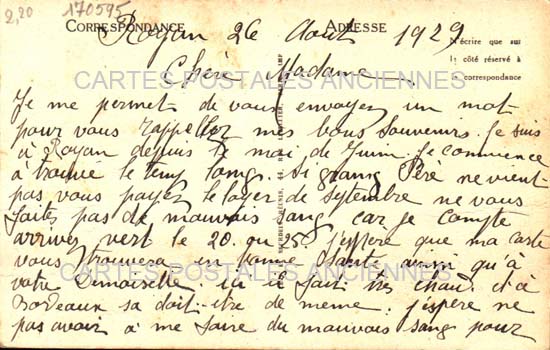 2,20 170595
CORRESPONDANCE ADRESSE
Royan 26 Août 1929
N'écrire que sur
le côté réservé à
la correspondance
Chère Madame
CARTES POSTALES ANCIENNES
Je me permet de vous envoyez un mot
pour vous rappeller mes bons souvenirs. Je suis
à Royan depuis le mai de Juin. Je commence
à trouve le temp long. Si grang Père ne vient
pas vous payez le loyer de septembre ne vous
faites pas de mauvais sang car je compte
arrivez vert le 20. ou 25. j'espère que ma carte
vous trouvera en bonne Santé ainsi qu'à
votre Demoiselle. ici il fait très chau. et à
CARTES POSTALES ANCIENNES
Bordeaux sa doit-être de meme. j'espère ne
pas avoir à me faire du mauvais sang pour